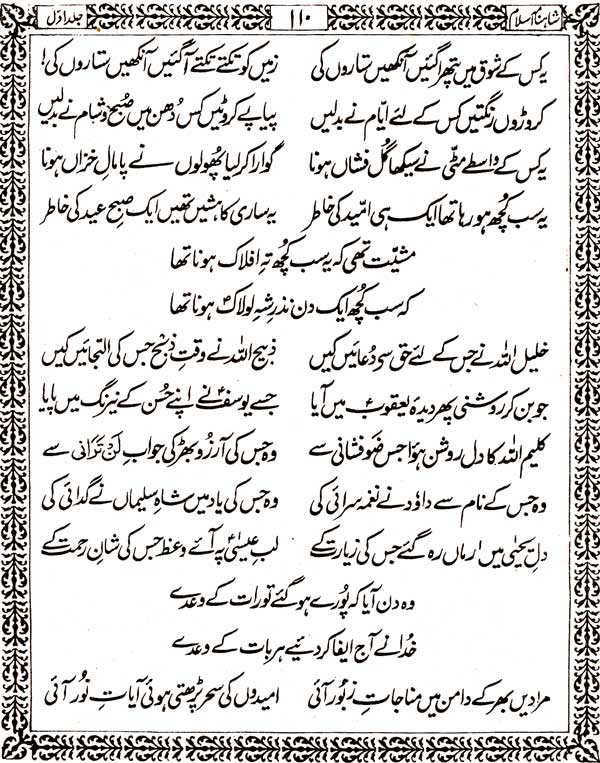 شاہنامہ اسلام ۱۱۰ جلد اول
یہ کس کے شوق میں پتھرا گئیں آنکھیں ستاروں کی زمیں کو تکتے تکتے آ گئیں آنکھیں ستاروں کی!
کروڑوں رنگتیں کس کے لئے ایّام نے بدلیں پیاپے کروٹیں کس دُھن میں صُبح و شام نے بدلیں
یہ کس کے واسطے مٹّی نے سیکھا گُل فشاں ہونا گوارا کر لیا پھُولوں نے پامالِ خزاں ہونا
یہ سب کُچھ ہو رہا تھا ایک ہی امّید کی خاطر یہ ساری کاہشیں تھیں ایک صبحِ عید کی خاطر
مشیّت تھی کہ یہ سب کُچھ تہِ افلاک ہونا تھا
کہ سب کُچھ ایک دن نذرِ شہِ لولاکؐ ہونا تھا
خلیل اللہ نے جس کے لئے حق سے دُعائیں کیں ذبیح اللہ نے وقتِ ذبح جس کی التجائیں کیں
جو بن کر روشنی پھر دیدۂ یعقوبؑ میں آیا جسے یوسفؑ نے اپنے حُسن کے نیرنگ میں پایا
کلیم اللہ کا دل روشن ہؤا جس ضوفشانی سے وہ جس کی آرزو بھڑکی جوابِ لَنْ تَرَانی سے
وہ جس کے نام سے داؤد نے نغمہ سرائی کی وہ جس کی یاد میں شاہِ سلیماں نے گدائی کی
دلِ یحیٰی میں ارماں رہ گئے جس کی زیارت کے لبِ عیسٰیؑ پہ آئے وعظ جس کی شانِ رحمت کے
وہ دن آیا کہ پُورے ہو گئے تورات کے وعدے
خُدا نے آج ایفا کر دئیے ہر بات کے وعدے
مرادیں بھر کے دامن میں مناجاتِ زبُور آئی امیدوں کی سحر پڑھتی ہوئی آیاتِ نُور آئی